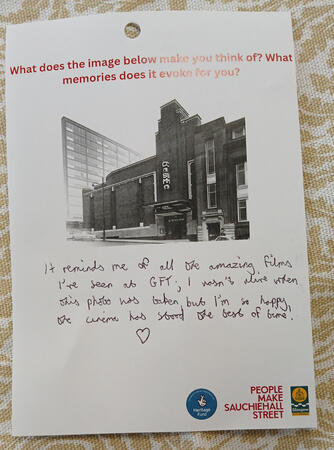 What does the image below make you think of? What
memories does it evoke for you?
It reminds me of all the amazing films
I've seen at GFT; I wasn't alive when
this photo was taken, but I'm so happy
the cinema has stood the test of time!
Heritage
Fund
PEOPLE
MAKE
SAUCHIEHALL
STREET
Glasgow